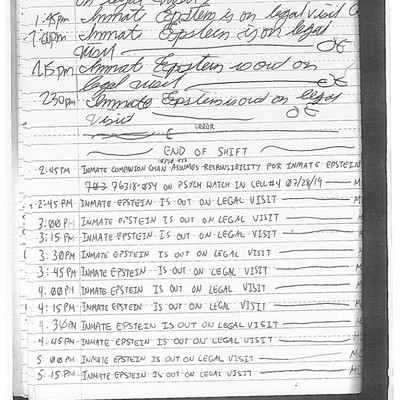 on legal visit
1:45pm Inmate Epstein is on legal visit
2:00pm Inmat Epstein is on legal
visit
2:15pm Inmat Epstein is out on
legal visit OE
2:30pm Inmate Epstein is out on legal
Visit OE
E ERROR
END OF SHIFT
2:45PM INMATE COMPANION CHAN ASSUMES RESPONSIBILITY FOR INMATE EPSTEIN
76318-054 ON PSYCH WATCH IN CELL#4 07/28/19 M
2:45PM INMATE EPSTEIN IS OUT ON LEGAL VISIT M
3:00PM INMATE EPSTEIN IS OUT ON LEGAL VISIT M
3:15PM INMATE EPSTEIN IS OUT ON LEGAL VISIT M
3:30PM INMATE EPSTEIN IS OUT ON LEGAL VISIT M
3:45PM INMATE EPSTEIN IS OUT ON LEGAL VISIT M
4:00PM INMATE EPSTEIN IS OUT ON LEGAL VISIT M
4:15PM INMATE EPSTEIN IS OUT ON LEGAL VISIT M
4:30PM INMATE EPSTEIN IS OUT ON LEGAL VISIT M
4:45PM INMATE EPSTEIN IS OUT ON LEGAL VISIT M
5:00PM INMATE EPSTEIN IS OUT ON LEGAL VISIT MC
5:15PM INMATE EPSTEIN IS OUT ON LEGAL VISIT MC